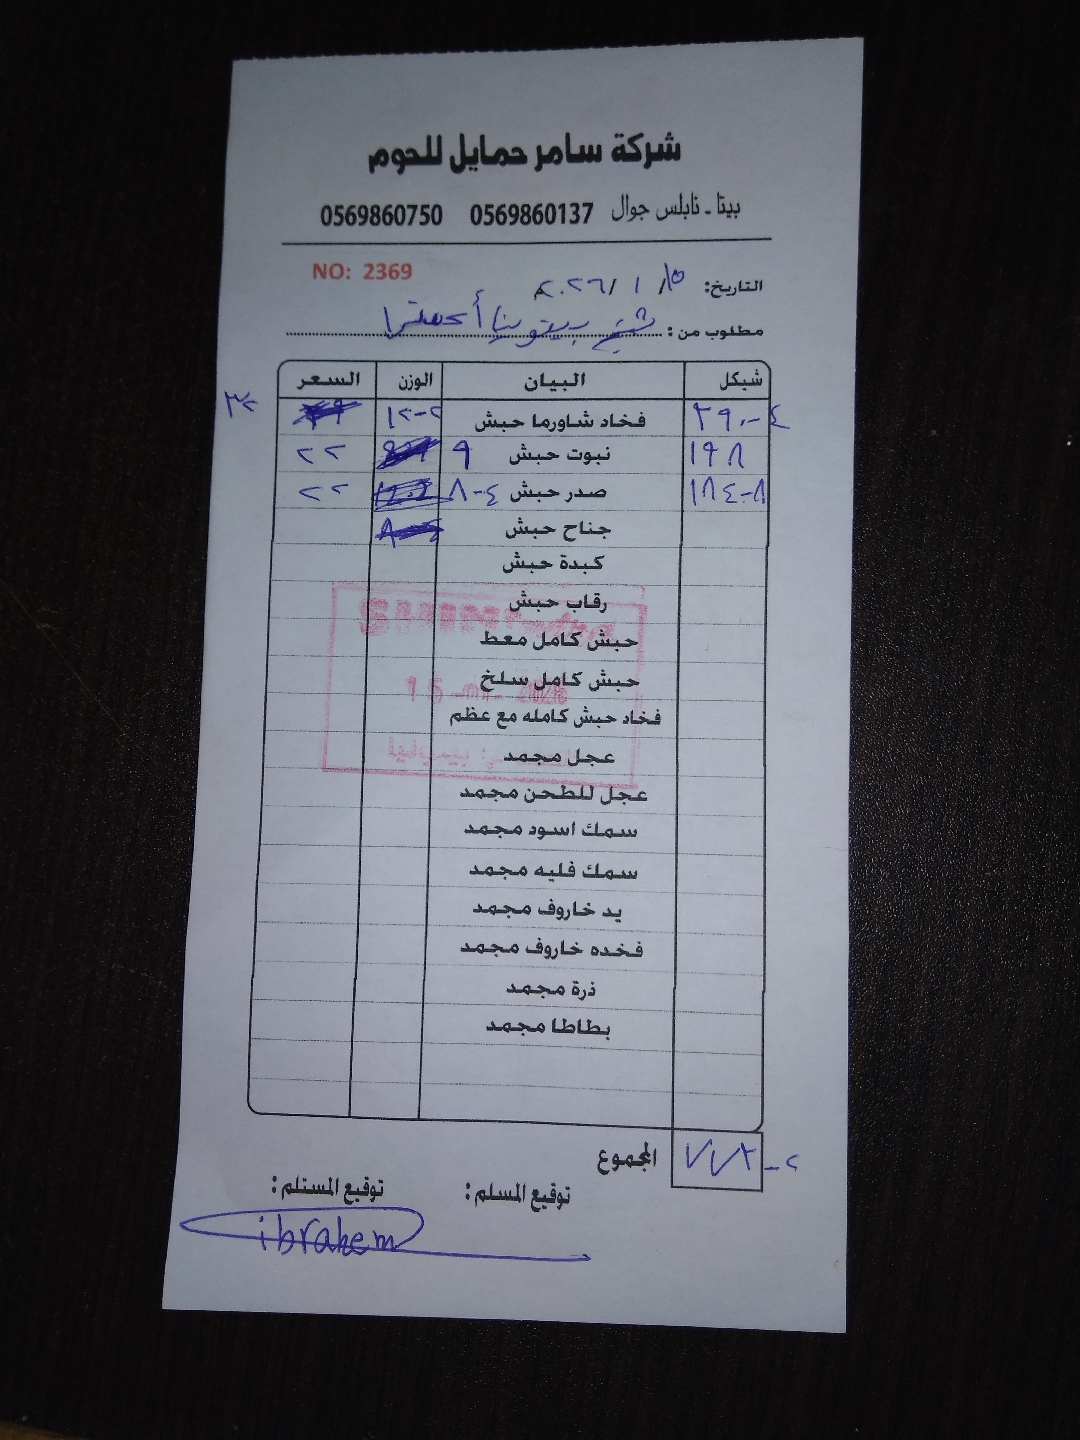 شركة سامر حمايل للحوم
بيتا - نابلس جوال 0569860137 0569860750
NO: 2369
التاريخ: ١٥/ ١ /٢٠٢٦
مطلوب من :
شيكل البيان الوزن السعر
٣٩٠-٤ فخاد شاورما حبش ١٢-٢ ٣٢
١٩٨ نبوت حبش ٩ ٢٢
١٨٤-٨ صدر حبش ٨-٤ ٢٢
جناح حبش
كبدة حبش
رقاب حبش
حبش كامل معط
حبش كامل سلخ
فخاد حبش كامله مع عظم
عجل مجمد
عجل للطحن مجمد
سمك اسود مجمد
سمك فليه مجمد
يد خاروف مجمد
فخده خاروف مجمد
ذرة مجمد
بطاطا مجمد
المجموع ٧٧٣-٢
توقيع المسلم : توقيع المستلم :
ibrahem